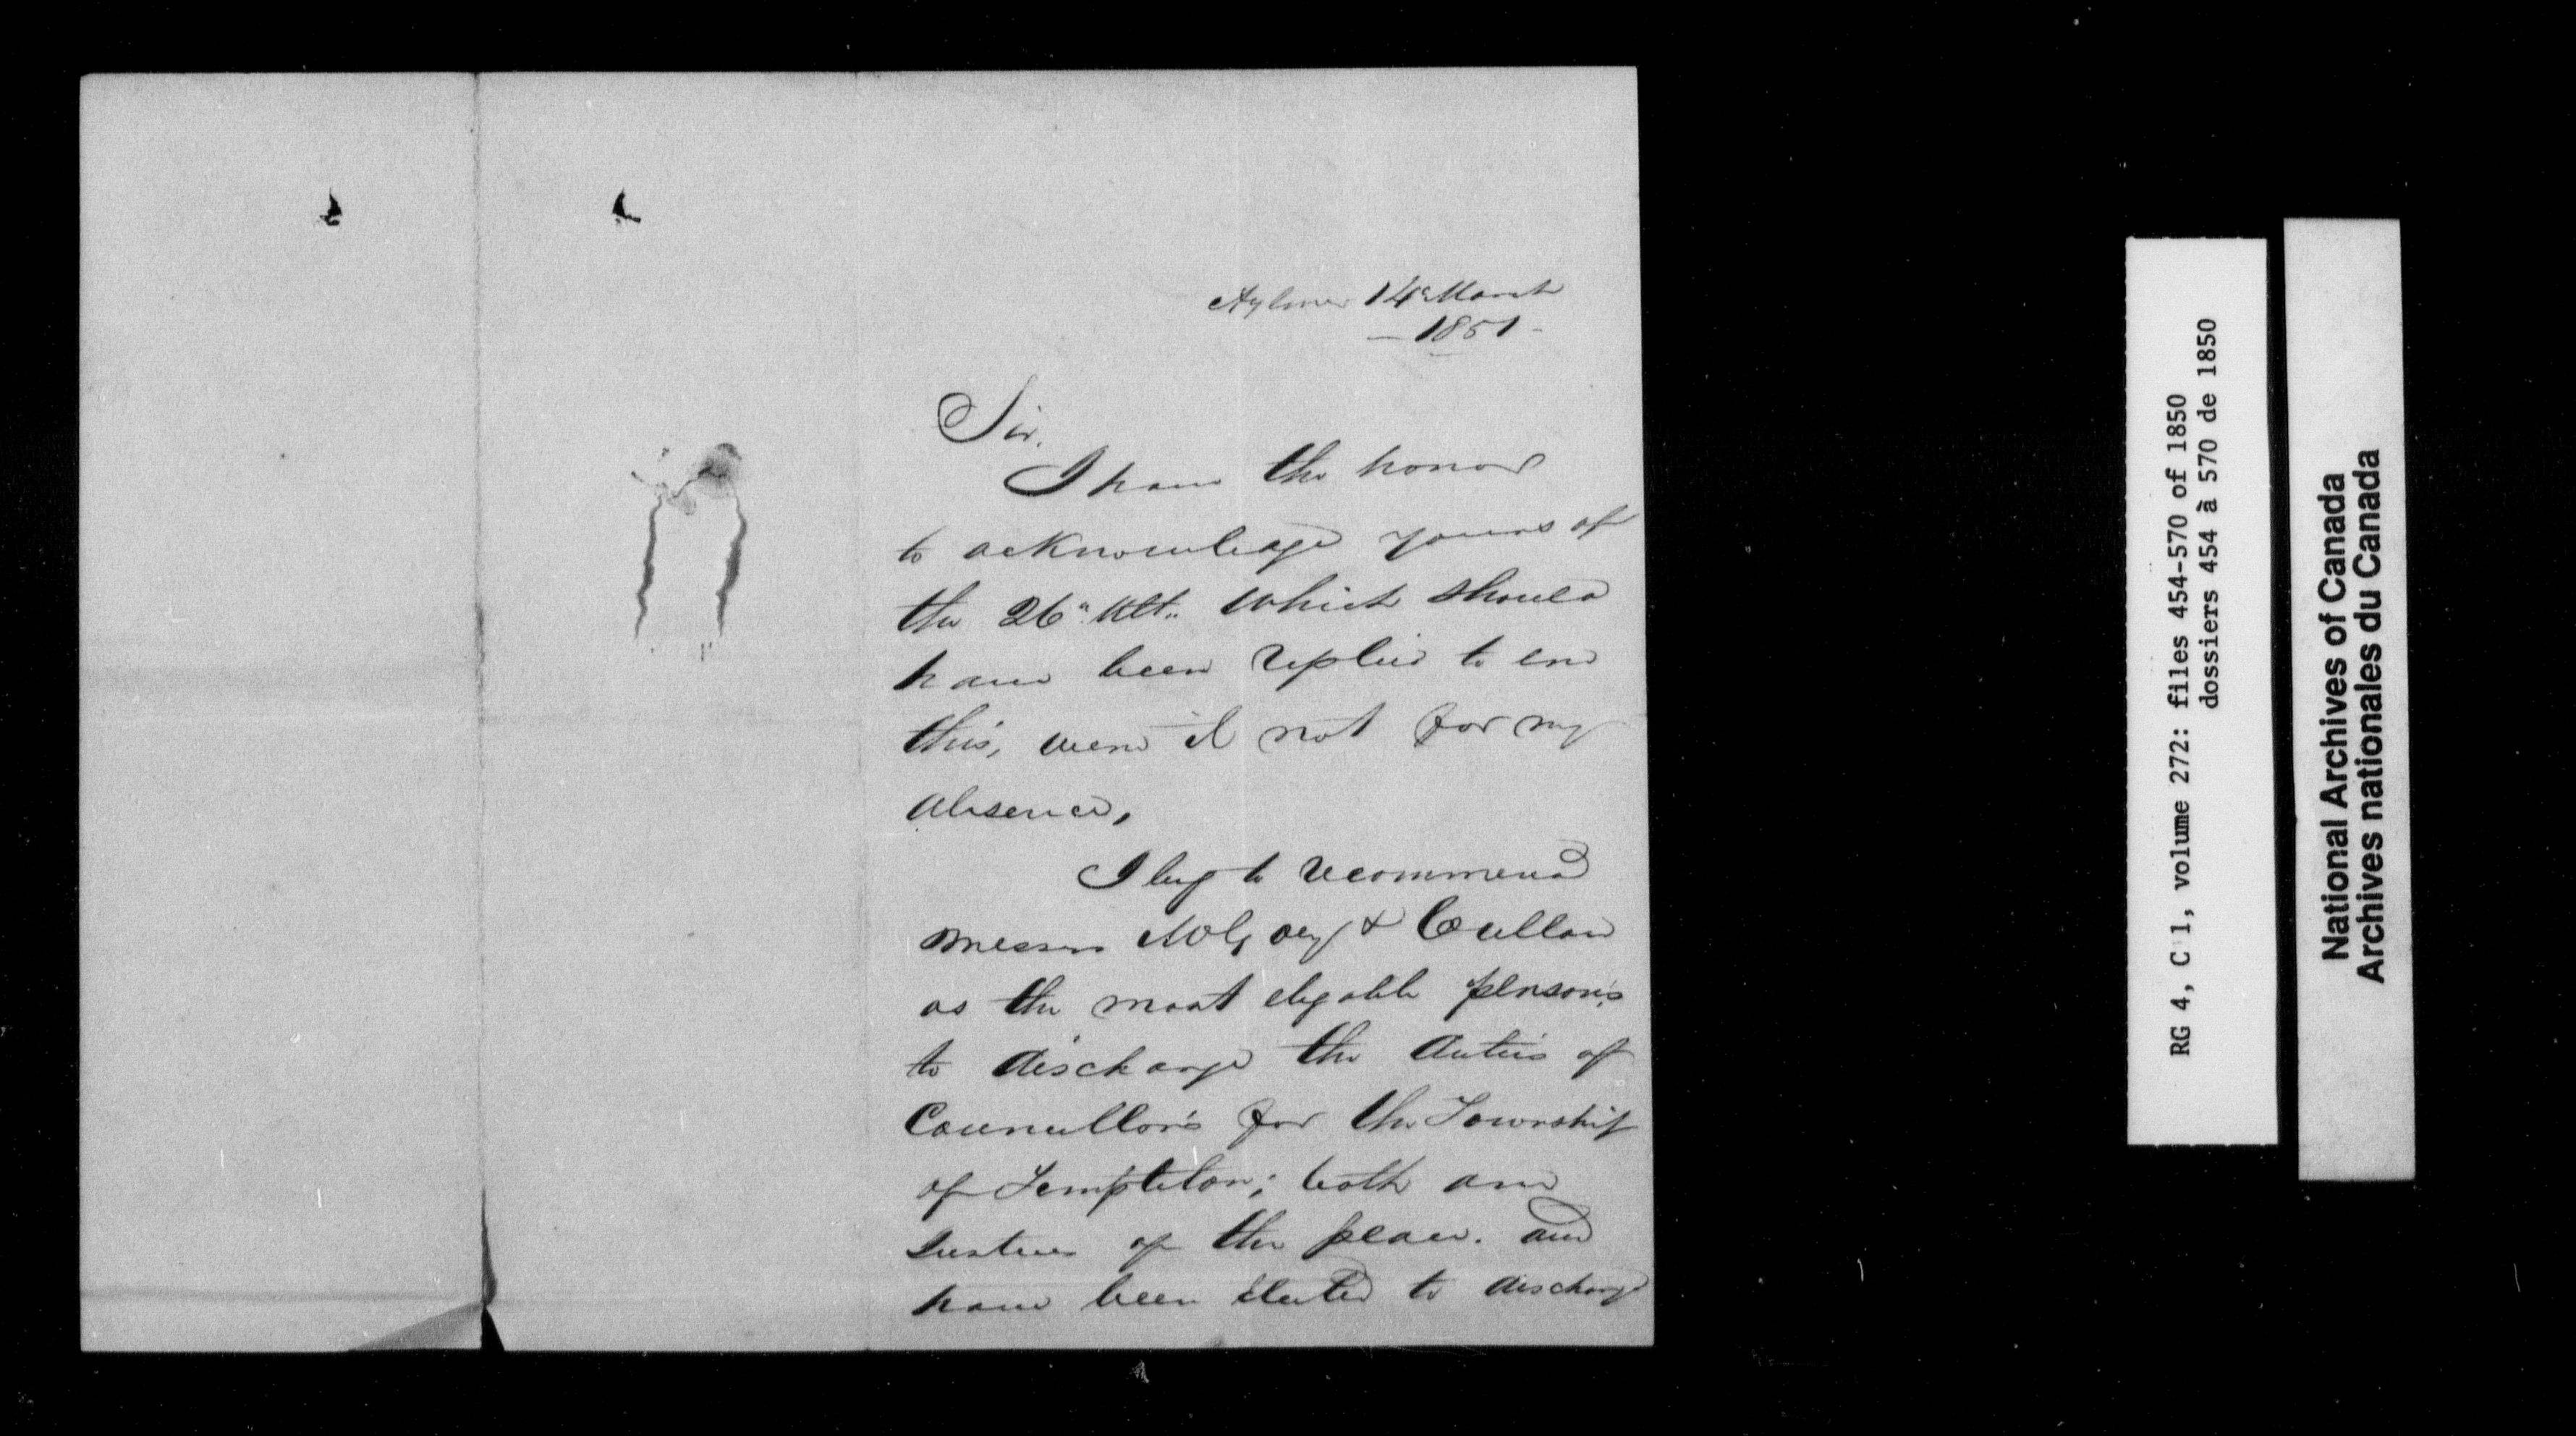 Aylmer 14 March
— 1851 -
Sir.
I have the honor
to acknowledge yours of
the 26" Ult.. which should
have been replied to ere
this, were it not for my
absence,
I beg to recommend
Messrs McGoey & Cullen
as the most elegable persons
to discharge the duties of
Councullors for the Township
of Templeton; both are
Justices of the peace. and
have been elected to discharge
RG 4, C 1, volume 272: files 454-570 of 1850
dossiers 454 à 570 de 1850
National Archives of Canada
Archives nationales du Canada